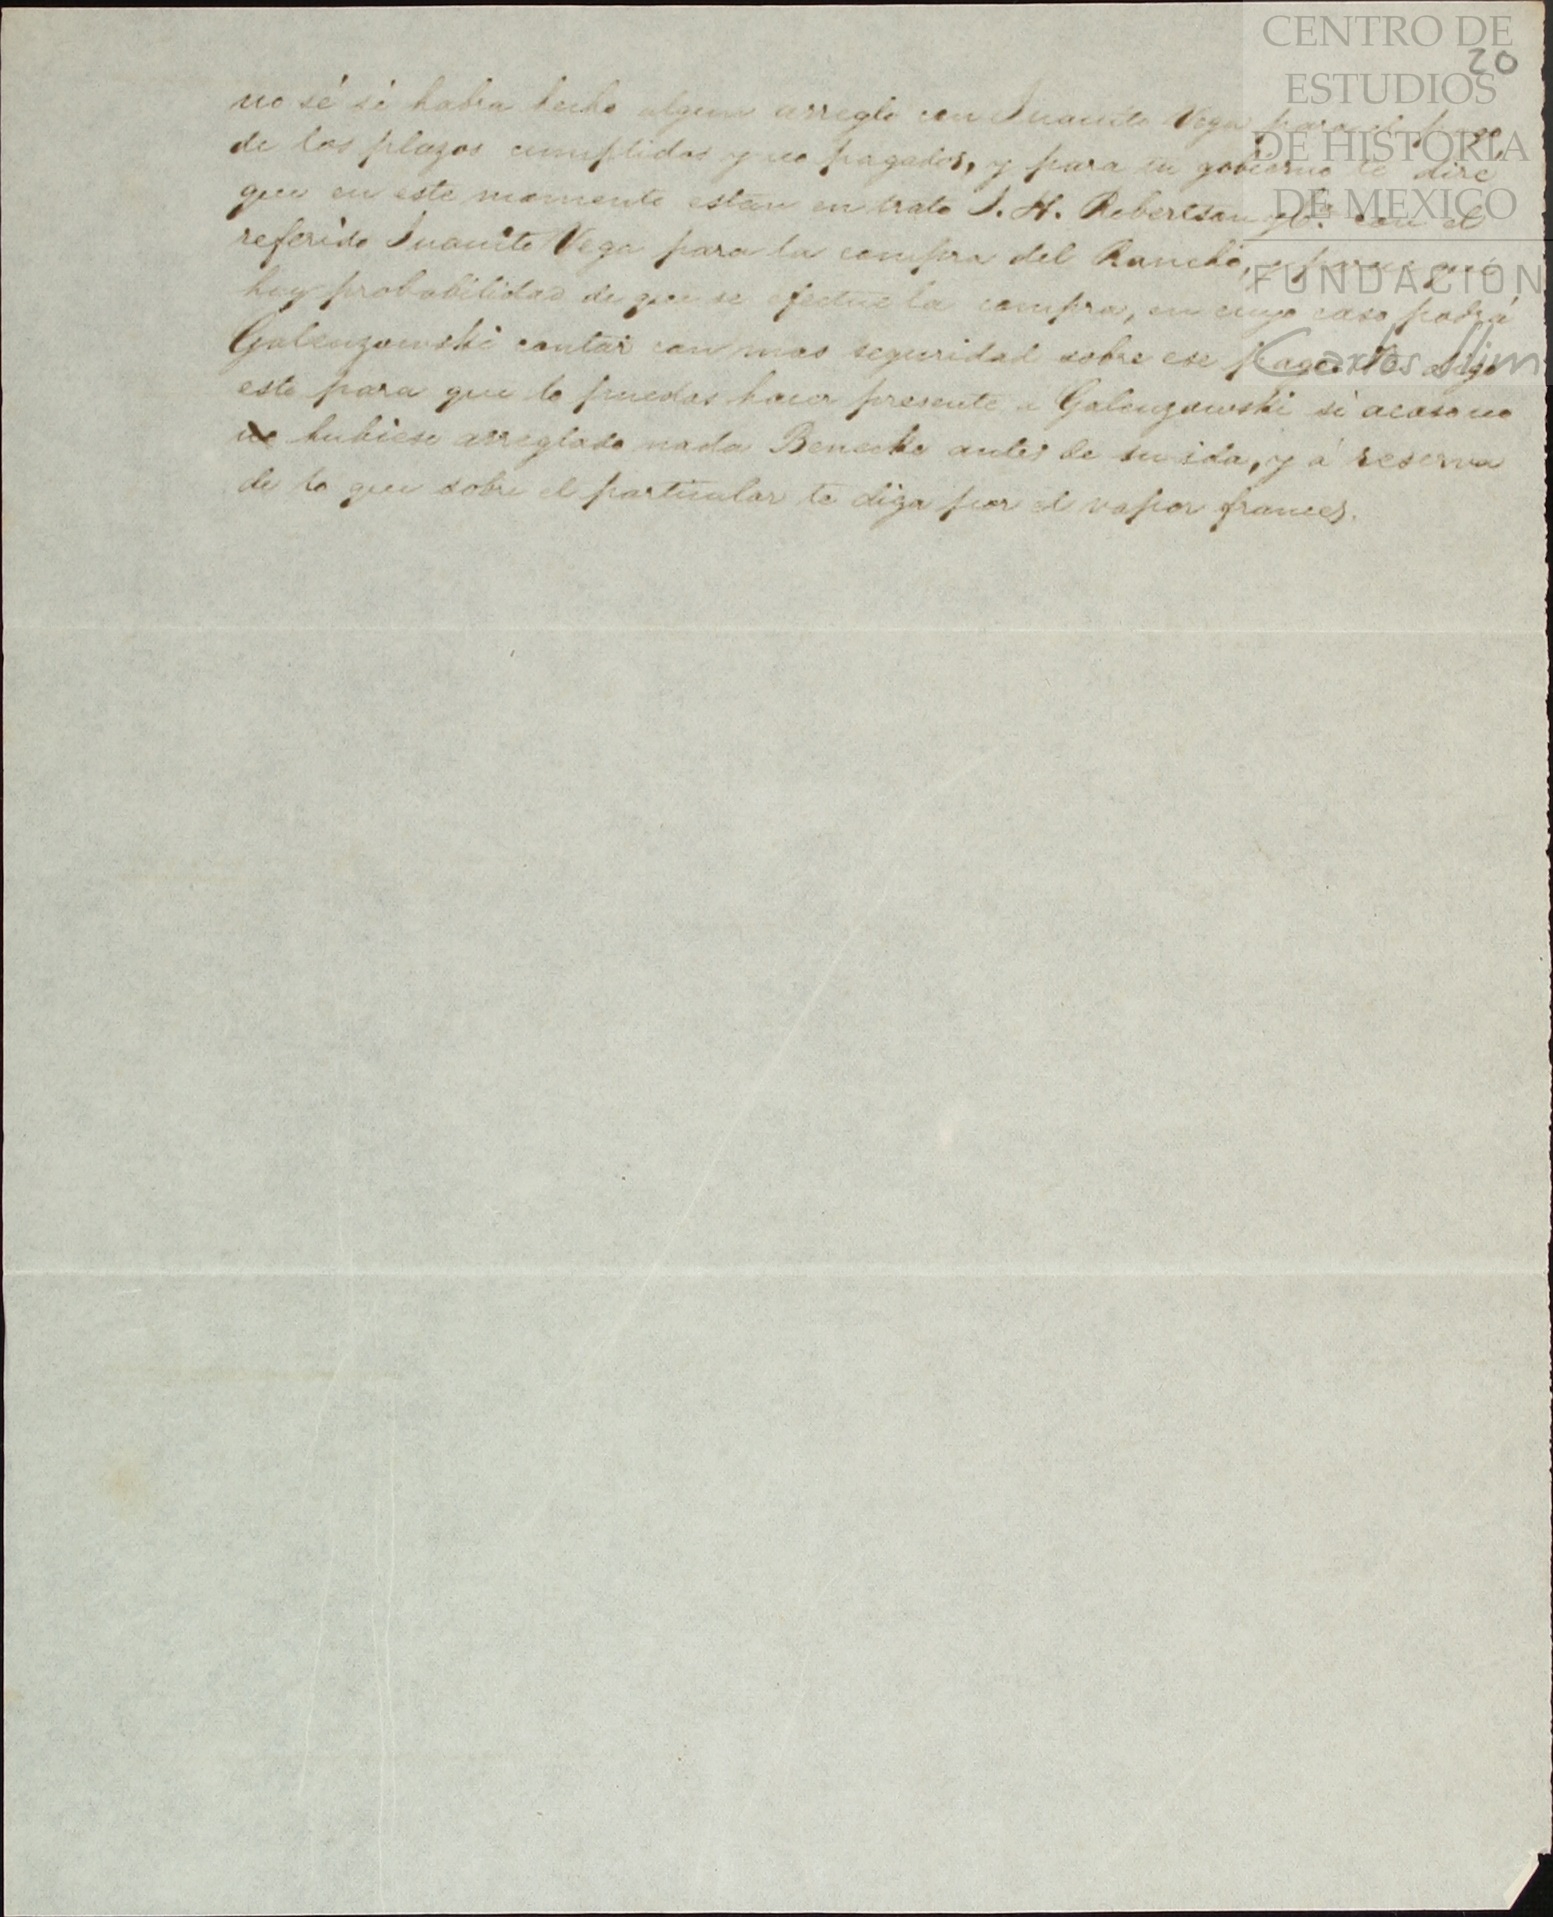 20
no sé si habra hecho algun arreglo con Juanito Vega para el pago
de los plazos cumplidos y no pagados, y para tu gobierno te diré
que en este momento estan en trato J. H. Robertson y C.ª con el
referido Juanito Vega para la compra del Rancho, y parece que
hay probabilidad de que se efectue la compra, en cuyo caso podrá
Galenzowski contar con mas seguridad sobre ese pago. Te digo
esto para que lo puedas hacer presente a Galenzowski si acaso no
no hubiese arreglado nada Benecke antes de su ida, y á reserva
de lo que sobre el particular te diga por el vapor frances.
CENTRO DE
ESTUDIOS
DE HISTORIA
DE MEXICO
FUNDACIÓN
Carlos Slim